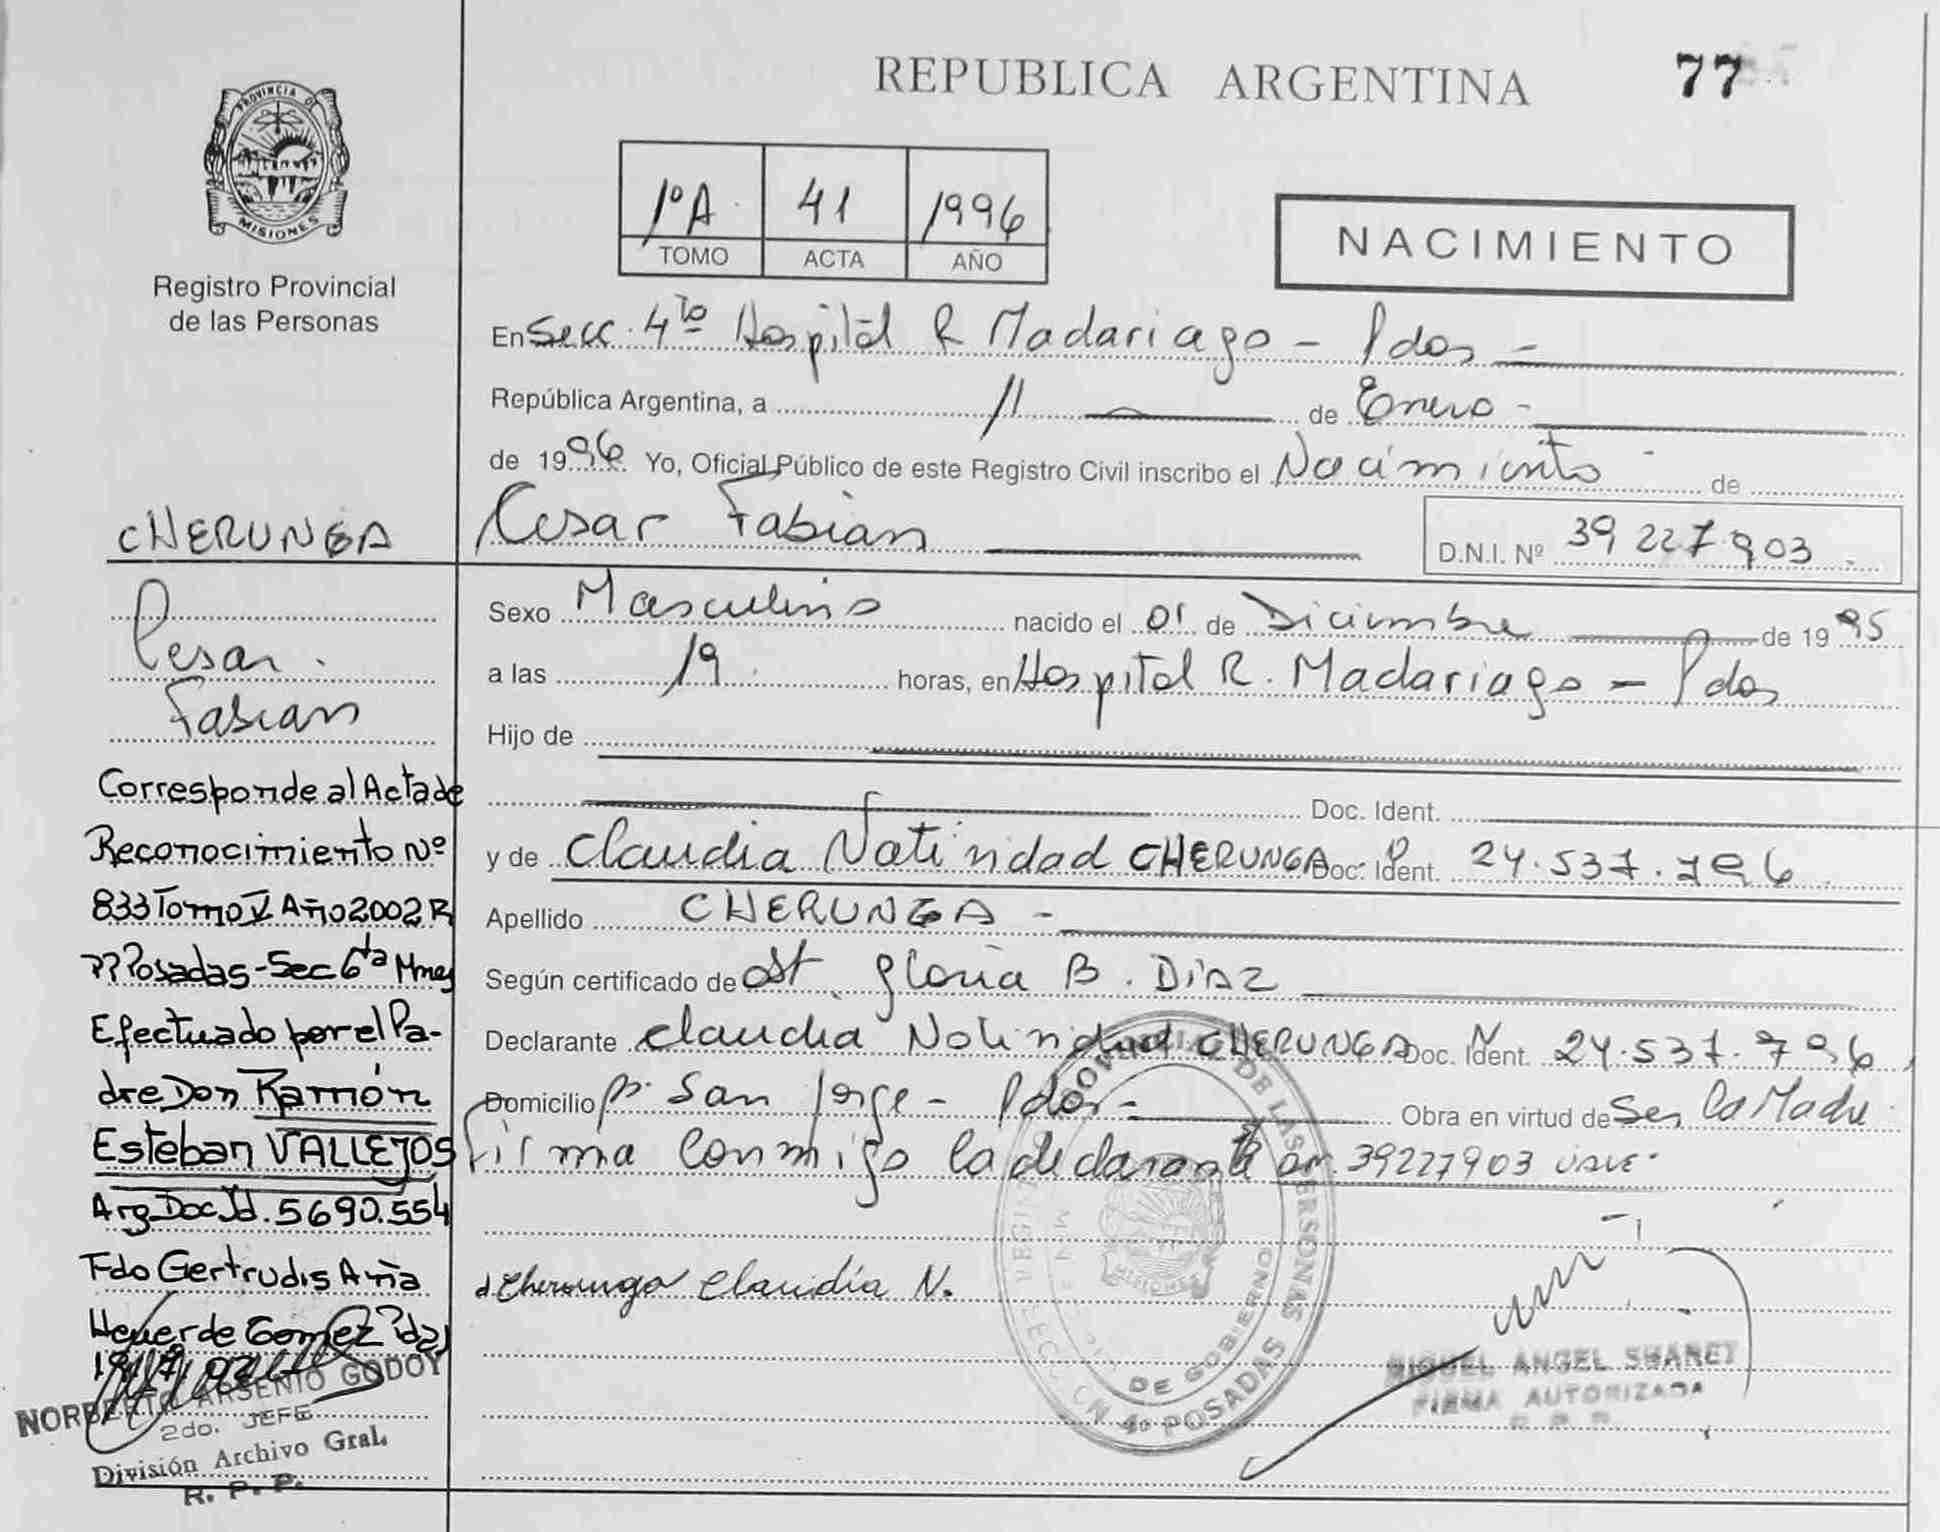 REPUBLICA ARGENTINA
77
PROVINCIA DE
MISIONES
Registro Provincial
de las Personas
1º A 41 1996
TOMO ACTA AÑO
NACIMIENTO
En Secc. 4ta Hospital R Madariaga - Pdas -
República Argentina, a 11 de Enero -
de 1996 Yo, Oficial Público de este Registro Civil inscribo el Nacimiento de
Cesar Fabian
D.N.I. Nº 39 227.903
Sexo Masculino nacido el 01 de Diciembre de 1995
a las 19 horas, en Hospital R. Madariaga - Pdas
Hijo de
Doc. Ident.
y de Claudia Natividad CHERUNGA Doc. Ident. 24.537.796
Apellido CHERUNGA -
Según certificado de Obst. Gloria B. Diaz
Declarante Claudia Natividad CHERUNGA Doc. Ident. 24.537.796
Domicilio Bº San Jorge - Pdas - Obra en virtud de Ser la Madre
firma conmigo la declarante 39227903 vale.
Cherunga Claudia N.
MIGUEL ANGEL
FIRMA AUTORIZADA
R. P. P.
DE LAS PERSONAS
DE GOBIERNO
POSADAS
CHERUNGA
Cesar
Fabian
Corresponde al Acta de
Reconocimiento Nº
833 Tomo V Año 2002 R
PP Posadas - Sec 6ta Mnes
Efectuado por el Pa-
dre Don Ramón
Esteban VALLEJOS
Arg Doc Id. 5690.554
Fdo Gertrudis Ana
Heuer de Gomez Pdas
NORBERTO ARSENIO GODOY
2do. JEFE
División Archivo Gral.
R. P. P.